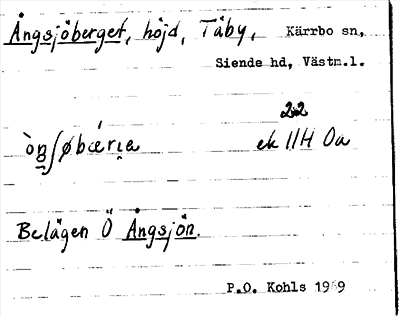 Ångsjöberget, höjd, Täby, Kärrbo sn,
Siende hd, Västm.l.
22
ek 11H 0a
Belägen Ö Ångsjön.
P.O. Kohls